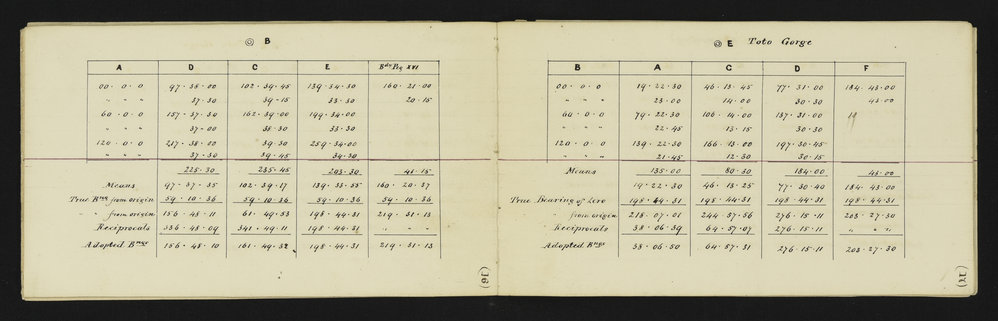 ◎ B
A D C E Bdy Peg XVI
00 · 0 · 0 97 · 38 · 00 102 · 39 · 45 139 · 34 · 30 160 · 21 · 00
" " " 37 · 30 39 · 15 33 · 30 20 · 15
60 · 0 · 0 157 · 37 · 30 162 · 39 · 00 199 · 34 · 00
" " " 37 · 00 38 · 30 33 · 30
120 · 0 · 0 217 · 38 · 00 39 · 30 259 · 34 · 00
" " " 37 · 30 39 · 45 34 · 30
225 · 30 235 · 45 203 · 30 41 · 15
Means 97 · 37 · 35 102 · 39 · 17 139 · 33 · 55 160 · 20 · 37
True Brng from origin 59 · 10 · 36 59 · 10 · 36 59 · 10 · 36 59 · 10 · 36
" from origin 156 · 48 · 11 61 · 49 · 53 198 · 44 · 31 219 · 31 · 13
Reciprocals 336 · 48 · 09 341 · 49 · 11 198 · 44 · 31 " " "
Adopted Brngs 156 · 48 · 10 161 · 49 · 32 198 · 44 · 31 219 · 31 · 13
(36)
◎ E Toto Gorge
B A C D F
00 · 0 · 0 19 · 22 · 30 46 · 13 · 45 77 · 31 · 00 184 · 43 · 00
" " " 23 · 00 14 · 00 30 · 30 43 · 00
60 · 0 · 0 79 · 22 · 30 106 · 14 · 00 137 · 31 · 00 19
" " " 22 · 45 13 · 15 30 · 30
120 · 0 · 0 139 · 22 · 30 166 · 13 · 00 197 · 30 · 45
" " " 21 · 45 12 · 30 30 · 15
135 · 00 80 · 30 184 · 00 43 · 00
Means 19 · 22 · 30 46 · 13 · 25 77 · 30 · 40 184 · 43 · 00
True Bearing of Zero 198 · 44 · 31 198 · 44 · 31 198 · 44 · 31 198 · 44 · 31
" from origin 218 · 07 · 01 244 · 57 · 56 276 · 15 · 11 203 · 27 · 30
Reciprocals 38 · 06 · 39 64 · 57 · 07 276 · 15 · 11 " " "
Adopted Brngs 38 · 06 · 50 64 · 57 · 31 276 · 15 · 11 203 · 27 · 30